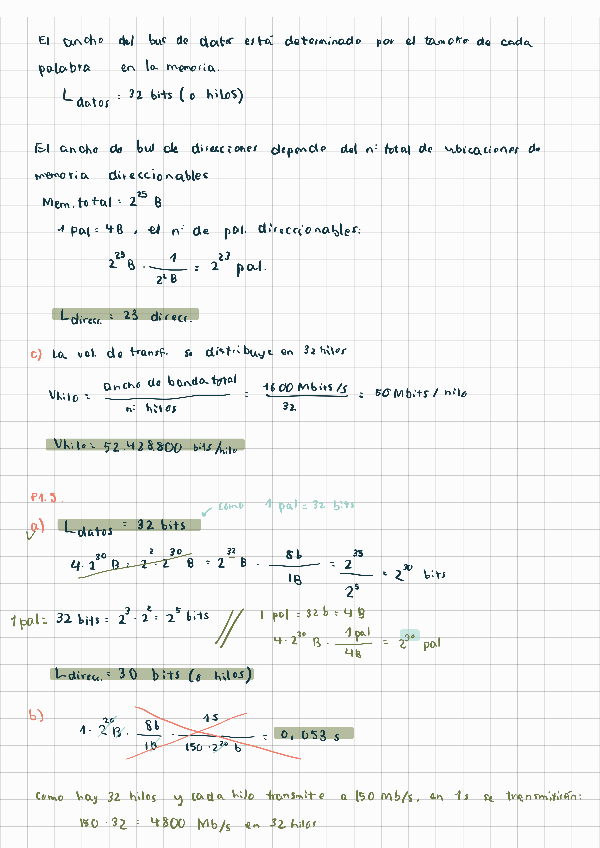 El ancho del bus de datos está determinado por el tamaño de cada
palabra en la memoria.
L datos = 32 bits (o hilos)
El ancho de bus de direcciones depende del nº total de ubicaciones de
memoria direccionables
Mem. total = 2^25 B
1 pal = 4B , el nº de pal. direccionables:
2^25 B · 1 / 2^2 B = 2^23 pal.
L direcc. = 23 direcc.
c) La vel. de transf. se distribuye en 32 hilos
Vhilo = ancho de banda total / nº hilos = 1600 Mbits/s / 32 = 50 Mbits/hilo
Vhilo = 52.428.800 bits/hilo
P1.5.
como 1 pal = 32 bits
a) L datos = 32 bits
4·2^30 B = 2^2 · 2^30 B = 2^32 B · 8b / 1B = 2^35 / 2^5 = 2^30 bits
1 pal = 32 bits = 2^3 · 2^2 = 2^5 bits // 1 pal = 32b = 4B
4·2^30 B · 1 pal / 4B = 2^30 pal
L direcc. = 30 bits (o hilos)
b) 1·2^20 B · 8b / 1B · 1s / 150·2^20 b = 0,053 s
Como hay 32 hilos y cada hilo transmite a 150 Mb/s, en 1s se transmitirán:
150 · 32 = 4800 Mb/s en 32 hilos